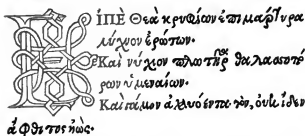 ΕΙΠΕ Θεὰ κρυφίων ἐπιμάρτυρα
λύχνον ἐρώτων·
Καὶ νύχιον πλωτῆρα θαλασσοπό
ρων ὑμεναίων·
Καὶ γάμον ἀχλυόεντα τὸν, οὐκ ἴδεν
ἄφθιτος ἠώς·